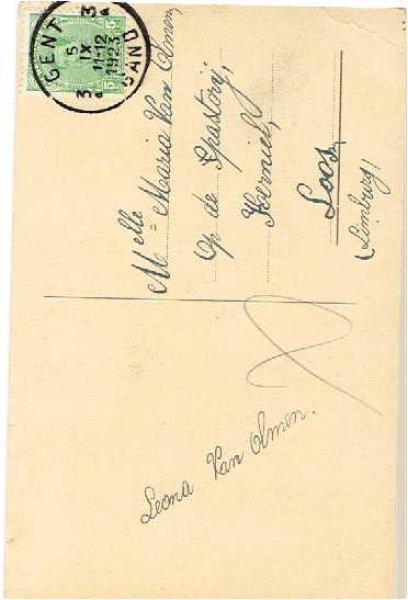 GENT
3 3
5
IX
11-12
1923
GAND
5 5
Melle Maria Van Olmen,
Op de Spastorij,
Kerniel,
Loos,
(Limburg)
Leona Van Olmen.